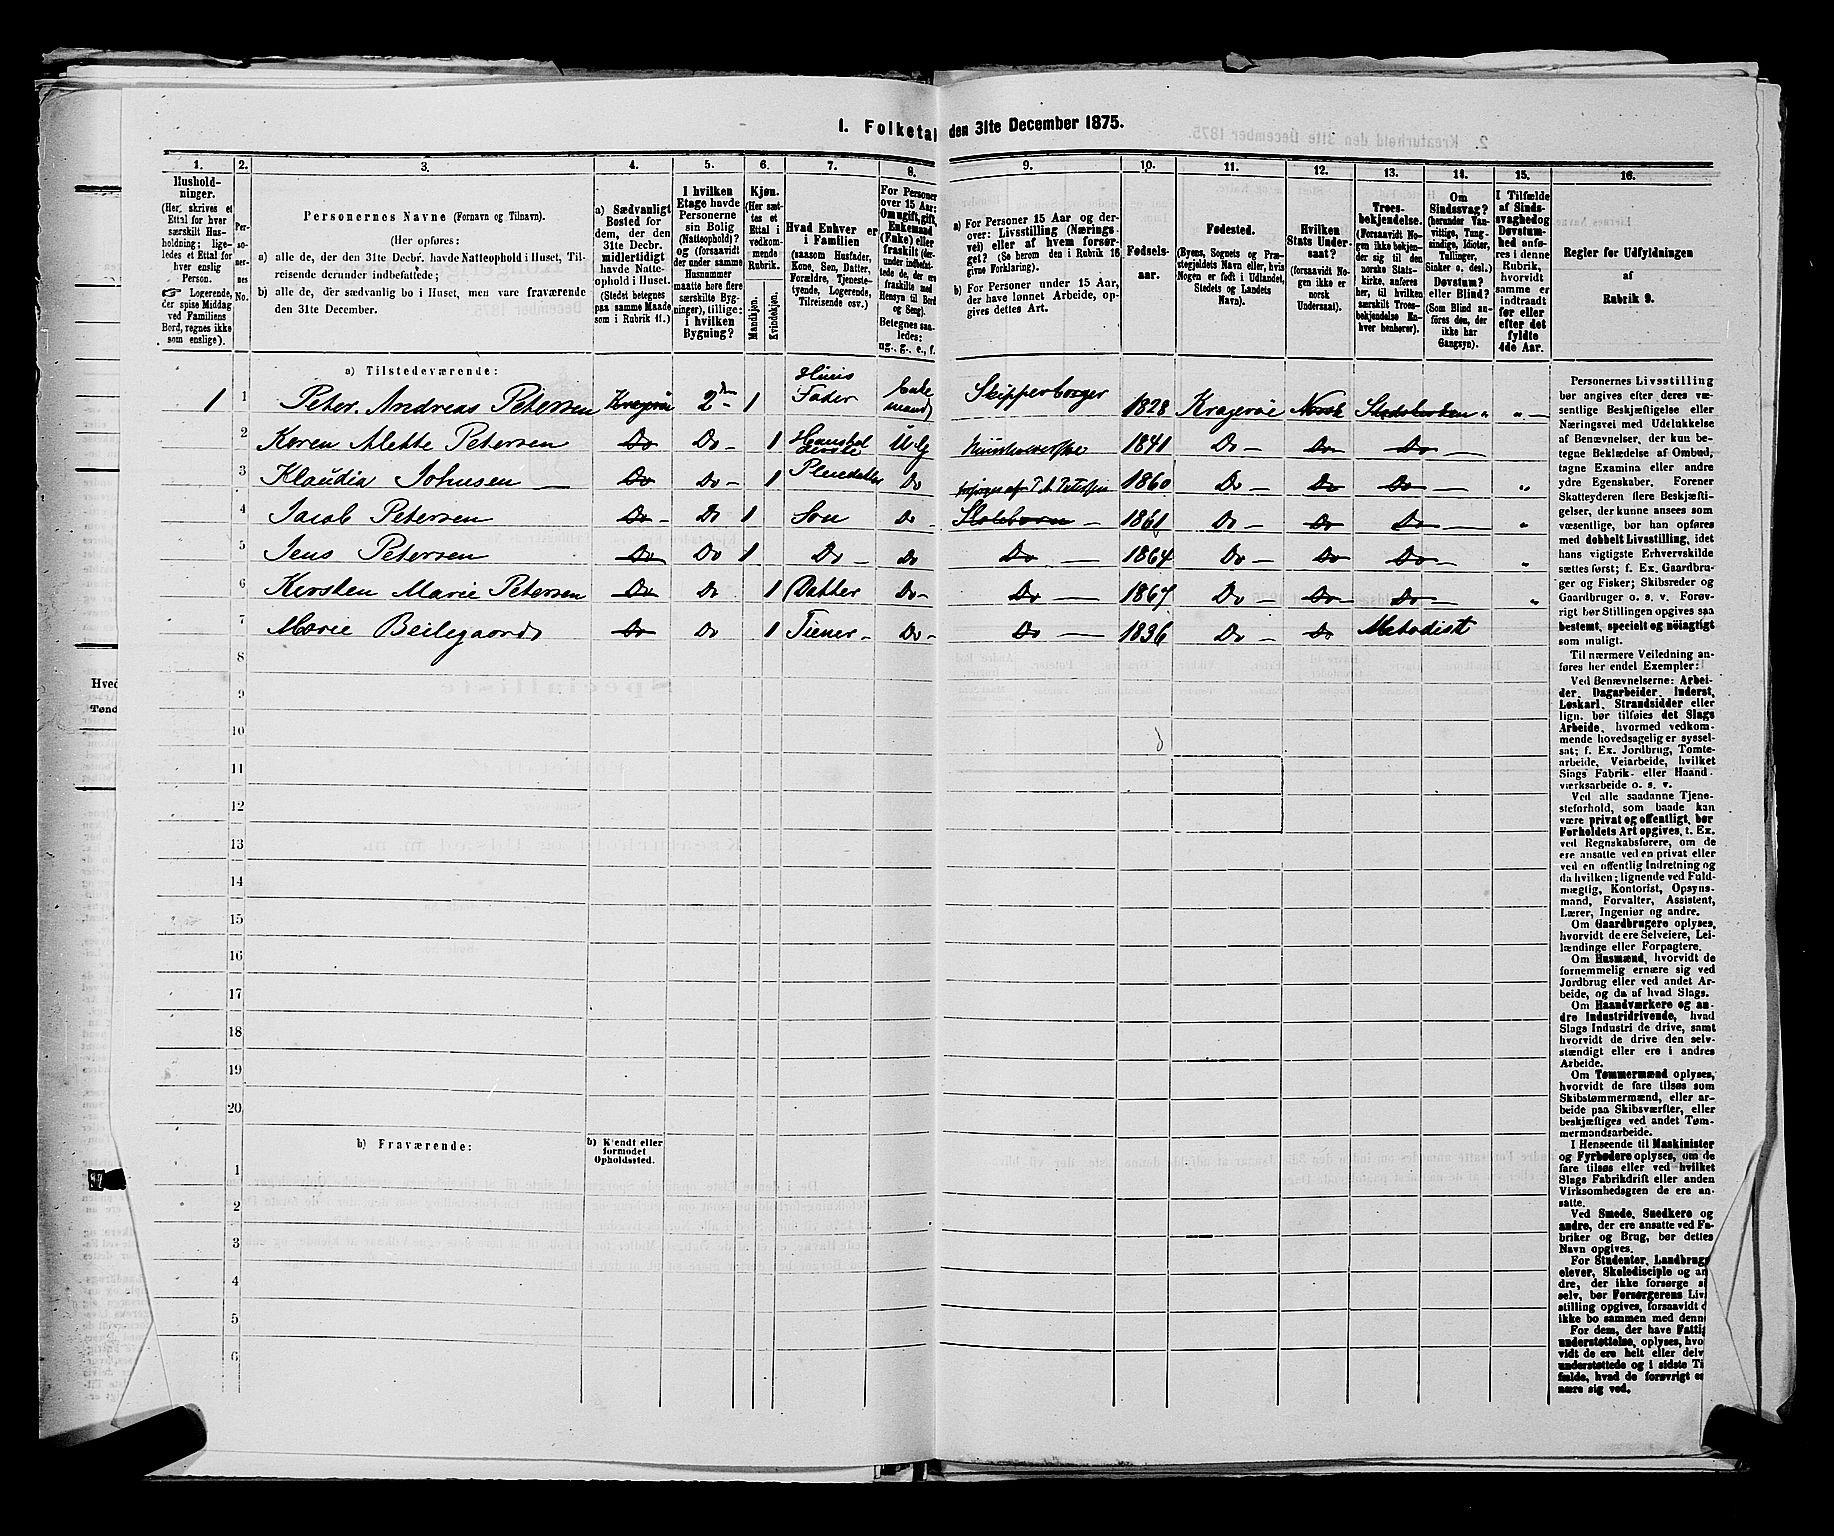 1. Folketal den 31te December 1875.
1. 2. 3. 4. 5. 6. 7. 8. 9. 10. 11. 12. 13. 14. 15. 16.
Hushold-
ninger.
(Her skrives et
Ettal for hver
særskilt Hus-
holdning; lige-
ledes et Ettal for
hver enslig
Person.
Logerende,
der spise Middag
ved Familiens
Bord, regnes ikke
som enslige).
Per-
so-
ner-
nes
No.
Personernes Navne (Fornavn og Tilnavn).
(Her opføres:
a) alle de, der den 31te Decbr. havde Natteophold i Huset, Til-
reisende derunder indbefattede;
b) alle de, der sædvanlig bo i Huset, men vare fraværende
den 31te December.
a) Sædvanligt
Bosted for
dem, der den
31te Decbr.
midlertidigt
havde Natte-
ophold i Huset.
(Stedet betegnes
paa samme Maade
som i Rubrik 11.)
I hvilken
Etage havde
Personerne
sin Bolig
(Natteophold)?
og (forsaavidt
der under samme
Husnummer
maatte høre flere
særskilte Byg-
ninger), tillige:
i hvilken
Bygning?
Kjøn.
(Her sæt-
tes et
Ettal i
vedkom-
mende
Rubrik.
Mandkjøn.
Kvindekjøn.
Hvad Enhver er
i Familien
(saasom Husfader,
Kone, Søn, Datter,
Forældre, Tjeneste-
tyende, Logerende,
Tilreisende osv.)
For Personer
over 15 Aar:
Om ugift, gift,
Enkemand
(Enke) eller
fraskilt (der-
under indbefat-
tede de, der ere
fraskilte med
Hensyn til Bord
og Seng).
Betegnes saa-
ledes:
ug., g., e., f.
a) For Personer 15 Aar og der-
over: Livsstilling (Nærings-
vei) eller af hvem forsør-
get? (Se herom den i Rubrik 16
givne Forklaring).
b) For Personer under 15 Aar,
der have lønnet Arbeide, op-
gives dettes Art.
Fødsels-
aar.
Fødested.
(Byens, Sognets og Præ-
stegjeldets Navn eller, hvis
Nogen er født i Udlandet,
Stedets og Landets
Navn).
Hvilken
Stats Under-
saat?
(forsaavidt No-
gen ikke er
norsk
Undersaat).
Troes-
bekjendelse.
(Forsaavidt No-
gen ikke bekjen-
der sig til den
norske Stats-
kirke, anføres
her, til hvilken
særskilt Troes-
bekjendelse En-
hver henhører).
Om
Sindssvag?
(herunder Van-
vittige, Tung-
sindige, Idioter,
Tullinger,
Sinker o. desl.)
Døvstum?
eller Blind?
(Som Blind an-
føres den, der
ikke har
Gangsyn).
I Tilfælde
af Sinds-
svaghed og
Døvstum-
hed anfø-
res i denne
Rubrik,
hvorvidt
samme er
indtraadt
før eller
efter det
fyldte
4de Aar.
Regler for Udfyldningen
af
Rubrik 9.
a) Tilstedeværende:
1 1 Peter Andreas Petersen Kragerøe 2den 1 Huus Fader Enkemand Skipperborger 1828 Kragerøe Norsk Statskirken " "
2 Karen Alette Petersen Do Do - 1 Ug 1841 Do - Do Do
3 Klaudia Johnsen Do Do - 1 Pleiedatter Do 1860 Do - Do Do "
4 Jacob Petersen Do - Do 1 Søn Do - Skolebørn 1861 Do - Do Do "
5 Jens Petersen Do Do 1 Do - Do Do 1864 Do - Do Do "
6 Kirsten Marie Petersen Do Do 1 Datter Do - Do 1867 Do - Do Do "
7 Marie Beilegaard Do Do 1 Tiener - Do - Do 1836 Do - Do Metodist
8
9
10
11
12
13
14
15
16
17
18
19
20
b) Fraværende:
b) Kjendt eller
formodet
Opholdssted.
1
2
3
4
5
6
Personernes Livsstilling
bør angives efter deres væ-
sentlige Beskjæftigelse eller
Næringsvei med Udelukkelse
af Benævnelser, der kun be-
tegne Beklædelse af Ombud,
tagne Examina eller andre
ydre Egenskaber. Forener
Skatteyderen flere Beskjæfti-
gelser, der kunne ansees som
væsentlige, bør han opføres
med dobbelt Livsstilling, idet
hans vigtigste Erhvervskilde
sættes først; f. Ex. Gaardbru-
ger og Fisker; Skibsreder og
Gaardbruger o. s. v. Forøv-
rigt bør Stillingen opgives saa
bestemt, specielt og nøiagtigt
som muligt.
Til nærmere Veiledning an-
føres her endel Exempler:
Ved Benævnelserne: Arbei-
der, Dagarbeider, Inderst,
Løskarl, Strandsidder eller
lign. bør tilføies det Slags
Arbeide, hvormed vedkom-
mende hovedsagelig er syssel-
sat; f. Ex. Jordbrug, Tomte-
arbeide, Veiarbeide, hvilket
Slags Fabrik- eller Haand-
værksarbeide o. s. v.
Ved alle saadanne Tjene-
steforhold, som baade kan
være privat og offentligt, bør
Forholdets Art opgives, t. Ex.
ved Regnskabsførere, om de
ere ansatte ved en privat eller
ved en offentlig Indretning og
da hvilken; lignende ved Fuld-
mægtig, Kontorist, Opsyns-
mand, Forvalter, Assistent,
Lærer, Ingeniør og andre.
Om Gaardbrugere oplyses,
hvorvidt de ere Selveiere, Lei-
lændinge eller Forpagtere.
Om Husmænd, hvorvidt de
fornemmelig ernære sig ved
Jordbrug eller ved andet Ar-
beide, og da af hvad Slags.
Om Haandværkere og an-
dre Industridrivende, hvad
Slags Industri de drive, samt
hvorvidt de drive den selv-
stændigt eller ere i andres
Arbeide.
Om Tømmermænd oplyses,
hvorvidt de fare tilsøs som
Skibstømmermænd, eller ar-
beide paa Skibsværfter, eller
beskjæftiges ved andet Tøm-
mermandsarbeide.
I Henseende til Maskinister
og Fyrbødere oplyses, om de
fare tilsøs eller ved hvilket
Slags Fabrikdrift eller anden
Virksomhedsgren de ere an-
satte.
Ved Smede, Snedkere og
andre, der ere ansatte ved Fa-
briker og Brug, bør dettes
Navn opgives.
For Studenter, Landbrugs-
elever, Skoledisciple og an
dre, der ikke forsørge si
selv, bør Forsørgerens Liv
stilling opgives, forsaavidt d
ikke bo sammen med denne
For dem, der have Fattig
understøttelse, oplyses, hvo
vidt de ere helt eller delv
understøttede og i sidste Ti
fælde, hvad de forøvrigt e
nære sig ved.
Hved
Tønd